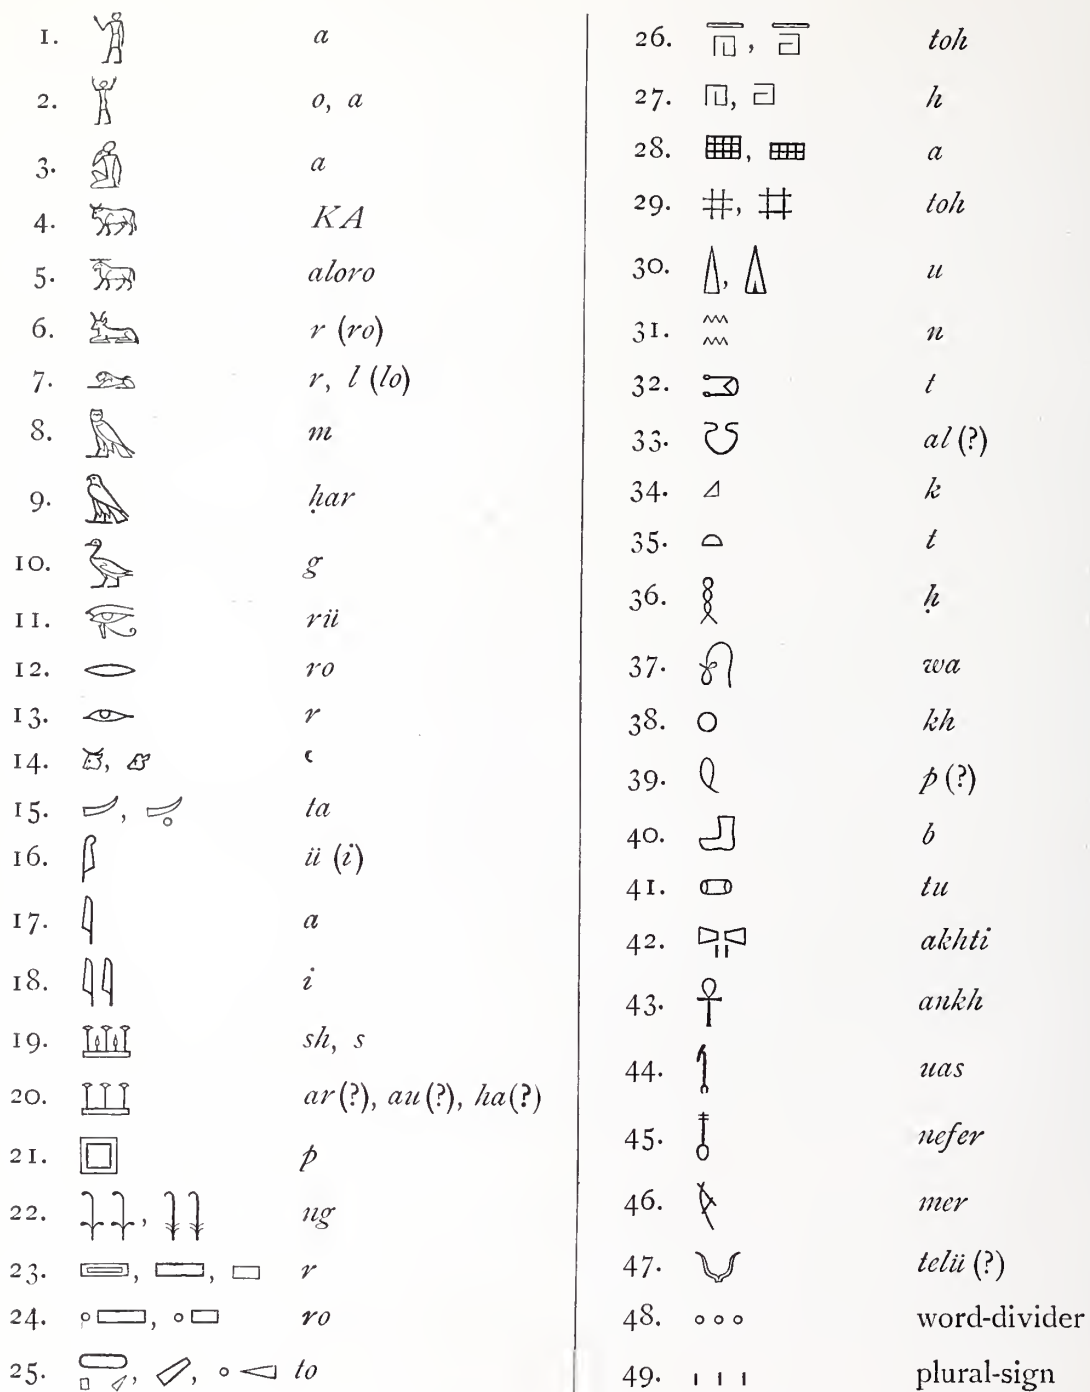 1. a
2. o, a
3. a
4. KA
5. aloro
6. r (ro)
7. r, l (lo)
8. m
9. ḥar
10. g
11. rü
12. ro
13. r
14. ʿ
15. , ta
16. ü (i)
17. a
18. i
19. sh, s
20. ar (?), au (?), ha (?)
21. p
22. , ng
23. , , r
24. , ro
25. , , to
26. , toh
27. , h
28. , a
29. , toh
30. , u
31. n
32. t
33. al (?)
34. k
35. t
36. ḥ
37. wa
38. kh
39. p (?)
40. b
41. tu
42. akhti
43. ankh
44. uas
45. nefer
46. mer
47. telü (?)
48. word-divider
49. plural-sign